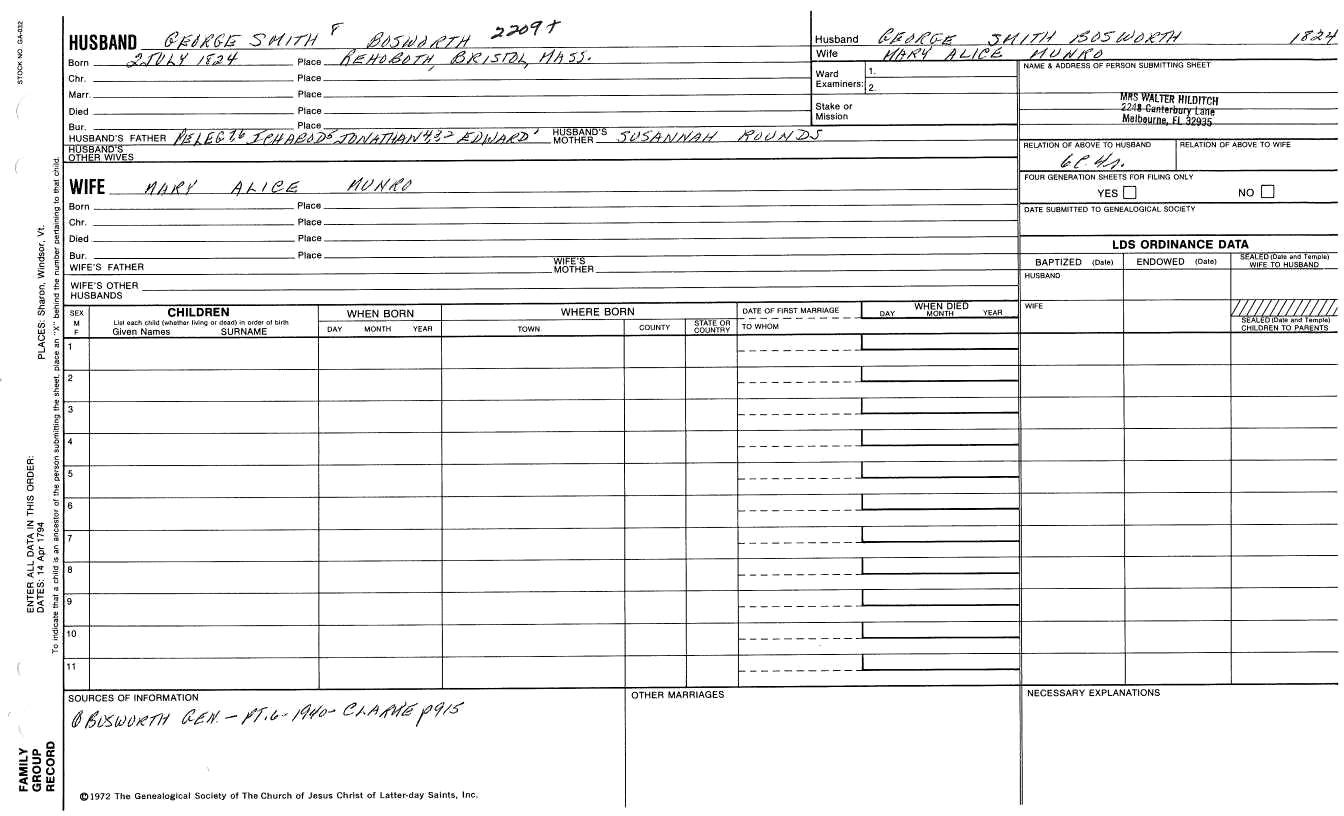 STOCK NO. GA-032
HUSBAND GEORGE SMITH 8 BOSWORTH 2209+
Born 2 JULY 1824 Place REHOBOTH, BRISTOL, MASS.
Chr. Place
Marr. Place
Died Place
Bur. Place
HUSBAND'S FATHER PELEG 7,6 ICHABOD 5 JONATHAN 4,3,2 EDWARD 1 HUSBAND'S MOTHER SUSANNAH ROUNDS
HUSBAND'S OTHER WIVES
WIFE MARY ALICE MUNRO
Born Place
Chr. Place
Died Place
Bur. Place
WIFE'S FATHER WIFE'S MOTHER
WIFE'S OTHER HUSBANDS
Husband GEORGE SMITH BOSWORTH 1824
Wife MARY ALICE MUNRO
Ward Examiners: 1. 2.
Stake or Mission
NAME & ADDRESS OF PERSON SUBMITTING SHEET
MRS WALTER HILDITCH
2248 Canterbury Lane
Melbourne, FL 32935
RELATION OF ABOVE TO HUSBAND RELATION OF ABOVE TO WIFE
6C.4r.
FOUR GENERATION SHEETS FOR FILING ONLY
YES NO
DATE SUBMITTED TO GENEALOGICAL SOCIETY
LDS ORDINANCE DATA
BAPTIZED (Date) ENDOWED (Date) SEALED (Date and Temple) WIFE TO HUSBAND
HUSBAND
WIFE
SEALED (Date and Temple) CHILDREN TO PARENTS
SEX M F CHILDREN WHEN BORN WHERE BORN DATE OF FIRST MARRIAGE WHEN DIED
List each child (whether living or dead) in order of birth
Given Names SURNAME DAY MONTH YEAR TOWN COUNTY STATE OR COUNTRY TO WHOM DAY MONTH YEAR
1
2
3
4
5
6
7
8
9
10
11
SOURCES OF INFORMATION OTHER MARRIAGES NECESSARY EXPLANATIONS
BOSWORTH GEN. - PT. 6 - 1940 - CLARKE p915
©1972 The Genealogical Society of The Church of Jesus Christ of Latter-day Saints, Inc.
FAMILY GROUP RECORD
ENTER ALL DATA IN THIS ORDER:
DATES: 14 Apr 1794 PLACES: Sharon, Windsor, Vt.
To indicate that a child is an ancestor of the person submitting the sheet, place an "X" behind the number pertaining to that child.